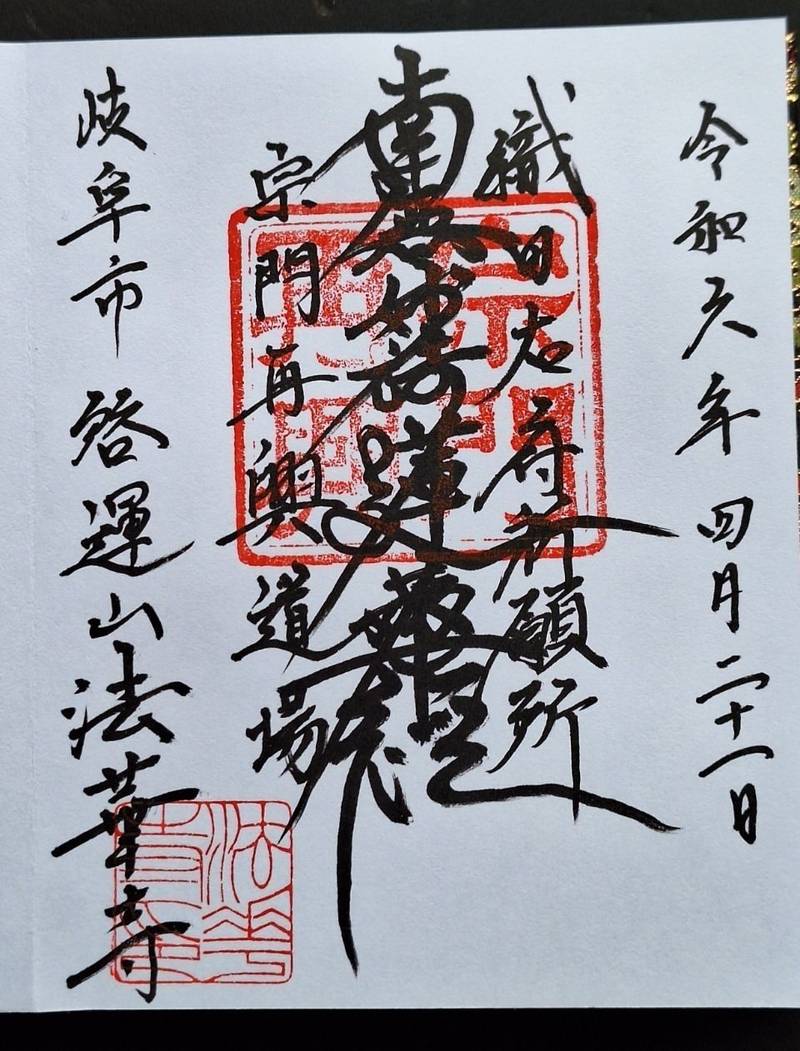 令和六年四月二十一日
織田右府祈願所
南無妙法蓮華経
宗門再興道場
岐阜市 啓運山法華寺
宗門再興
法華寺印